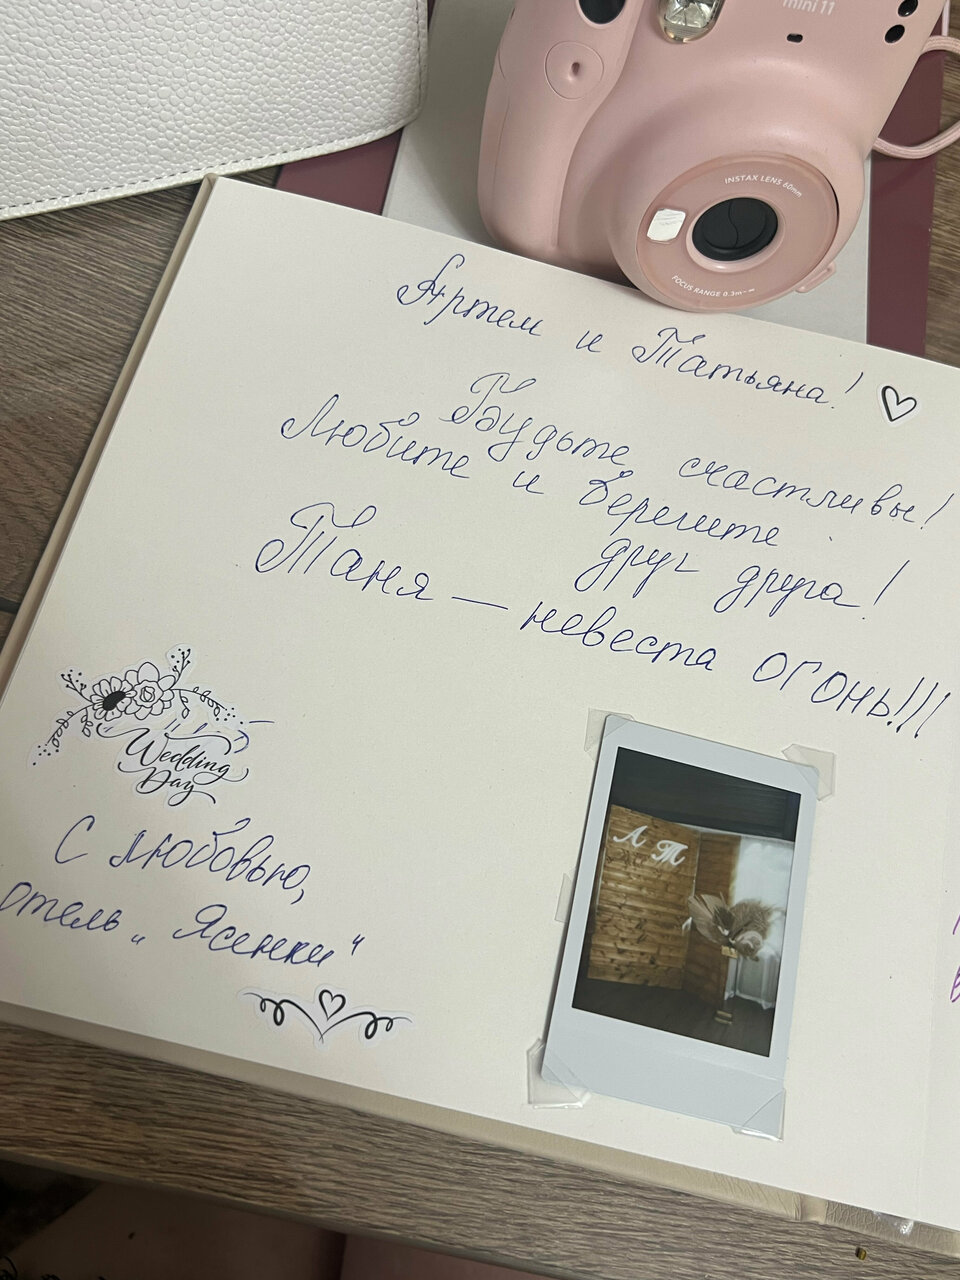 mini 11
INSTAX LENS 60mm
FOCUS RANGE 0.3m-∞
Артем и Татьяна!
Будьте счастливы!
Любите и берегите
друг друга!
Таня — невеста огонь!!!
Wedding
Day
С любовью,
отель „Ясенки“
А Т